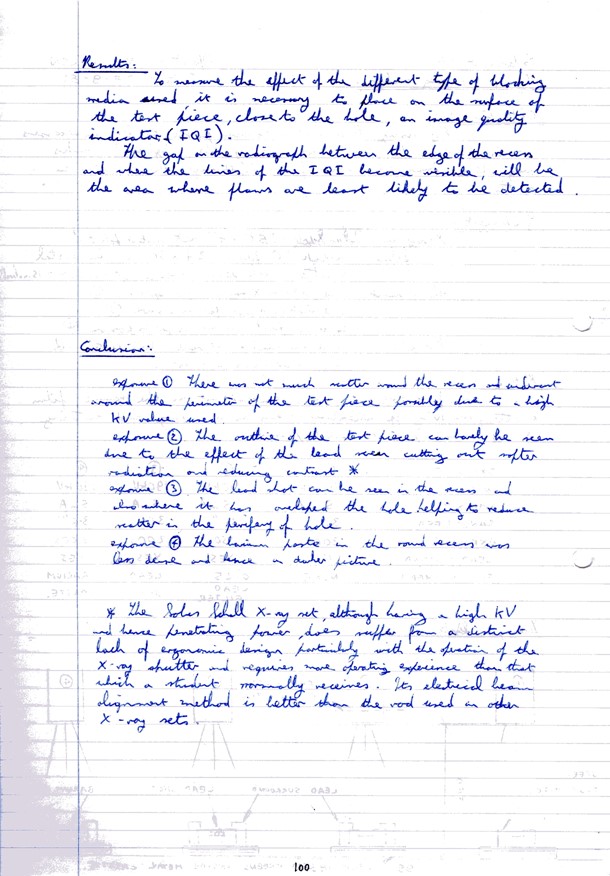 Results:
To measure the effect of the different type of blocking
media used, it is necessary to place on the surface of
the test piece, close to the hole, an image quality
indicator (IQI).
The gap on the radiograph between the edge of the recess
and where the lines of the IQI become visible, will be
the area where flaws are least likely to be detected.
Conclusion:
exposure ① There was not much scatter round the recess and
around the perimeter of the test piece possibly due to a high
KV value used.
exposure ② The outline of the test piece can barely be seen
due to the effect of the lead screen cutting out softer
radiation and reducing contrast *
exposure ③ The lead shot can be seen in the recess and
also where it has overlaped the hole helping to reduce
scatter in the perifery of hole.
exposure ④ The barium paste in the round recess was
less dense and hence a darker picture.
* The Solus Schall X-ray set, although having a high KV
and hence penetrating power, does suffer from a distinct
lack of ergonomic design particularly with the position of the
X-ray shutter and requires more operating experience than that
which a student normally receives. Its electrical beam
alignment method is better than the rod used on other
X-ray sets.
100